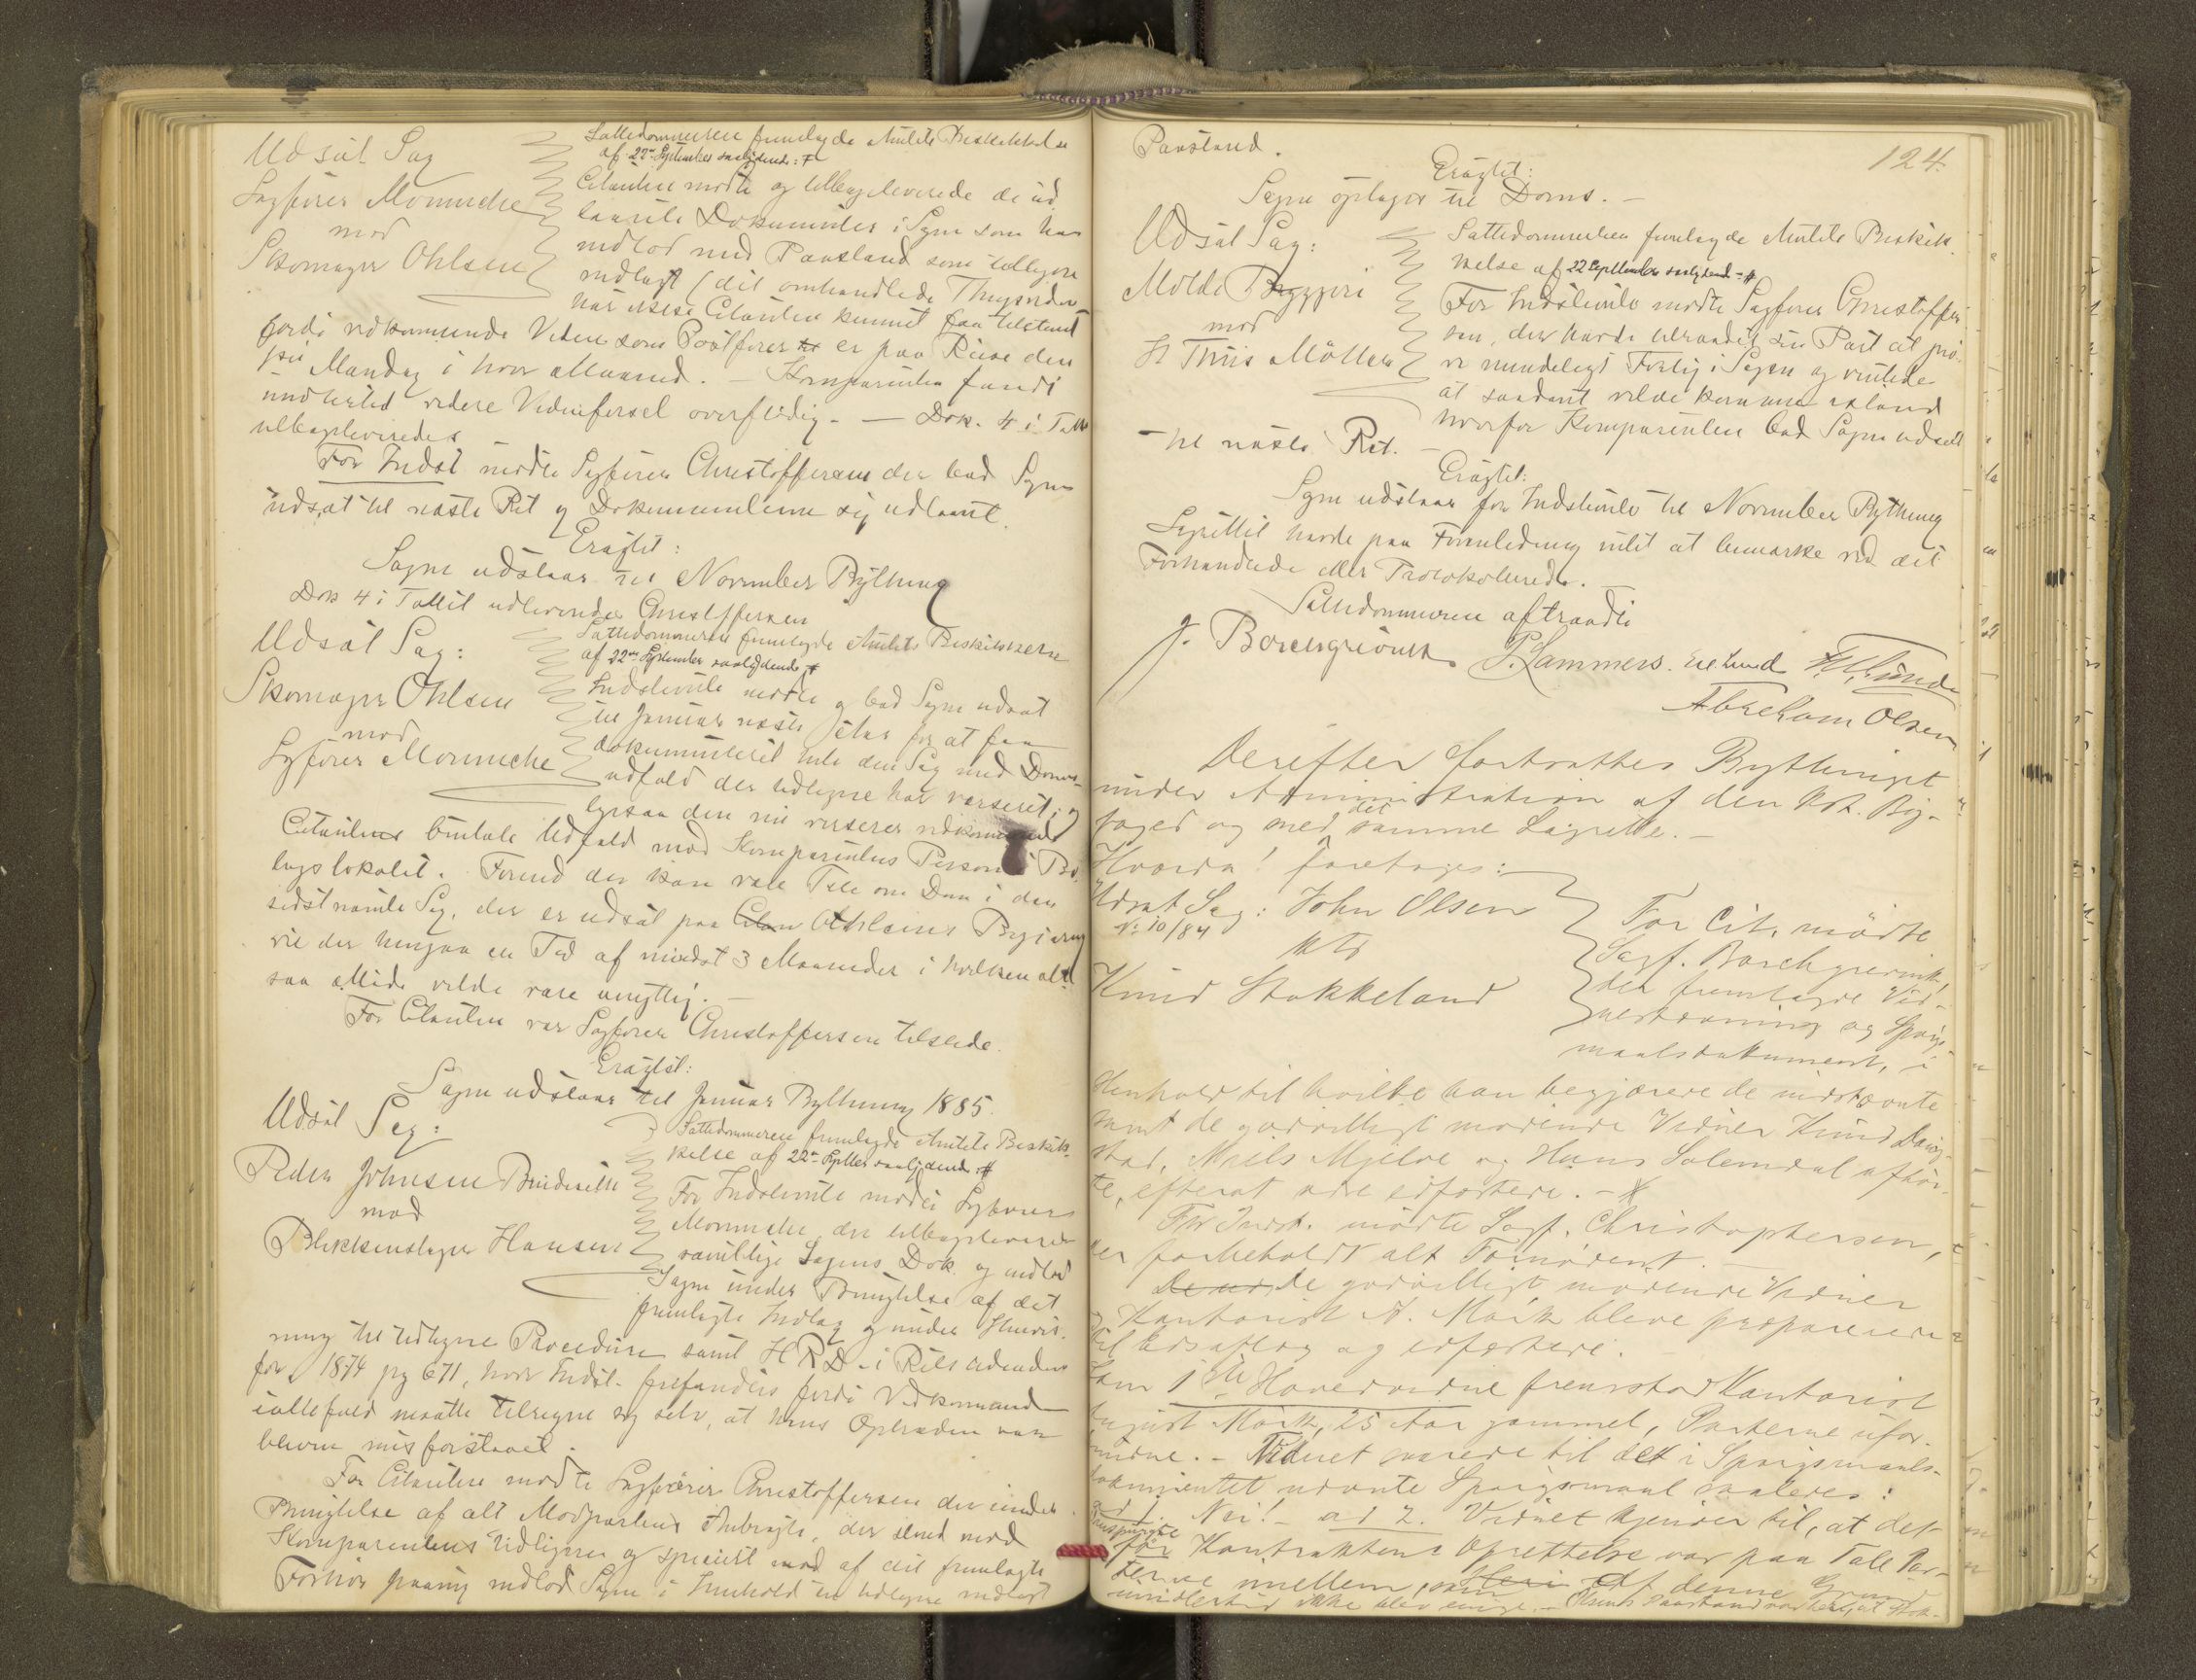 Udsat Sag
Sagfører Mønniche
mod
Skomager Ohlsen
Sættedommeren fremlagde Amtets Beskikkelse
af 22de September saalydende: #
Citanten mødte og tilbageleverede de ud
laante Dokumenter i Sagen som han
indlod med Paastand som tidligere
nedlagt (det omhandlede Thingsvidne
har ikke Citanten kunnet faa tilstand
fordi vedkommende Vidne som Postfører er paa Reise den
første Mandag i hver Maaned. – Komparenten fandt
imidlertid videre Vidneførsel overflødig. – Dok. 4 i Tallet
tilbageleveredes
For Indst mødte Sagfører Christoffersen der bad Sagen
udsat til næste Ret og Dokumenterne sig udlaant.
Eragtet:
Sagen udstaar til November Bything
Dok 4 i Tallet udleveredes Christoffersen
Udsat Sag:
Skomager Ohlsen
mod
Sagfører Mønniche
Sættedommeren fremlagde Amtets Beskikkelse
af 22de September saalydende #
Indstevnte mødte og bad Sagen udsat
til Januar næste Aar for at faa
dokumenteret hele den Sag med Doms-
udfald der tidligere har verseret; og
ligesaa den nu verserer vedkommende
Citantens brutale Udfald mod Komparentens Person i Bo
lagslokalet. Forend der kan være Tale om Dom i den
sidstnævnte Sag, der er udsat paa Ohlsens Begjæring
vil der hengaa en Tid af mindst 3 Maaneder i hvilken alt
saa Møde vilde være unyttig. –
For Citanten var Sagfører Christoffersen tilstede.
Eragtet:
Sagen udstaar til Januar Bything 1885.
Udsat Sag:
Peder Johnsen Brudeseth
mod
Blikkenslager Hansen
Sættedommeren fremlagde Amtets Beskik-
kelse af 22de Septbr saalydende: #
For Indstevnte mødte Sagfører
Mønniche der tilbageleverede
samtlige Sagens Dok. og indlod
Sagen under Benægtelse af det
fremlagte Indlæg og under Henvis-
ning til tidligere Procedure samt H R D i Rets tidende
for 1874 pg 671, hvor Indst. frifandtes fordi Vedkommende
iallefald maatte tilregne sig selv, at hans Optræden var
bleven misforstaaet.
For Citanten mødte Sagfører Christoffersen der under
Benægtelse af alt Modpartens Anbragte, der stred mod
Komparentens tidligere og specielt mod af det fremlagte
Forhør paany indlod Sagen i Henhold til tidligere nedlagt
124.
Paastand.
Eragtet:
Sagen optages til Doms. –
Udsat Sag:
Molde Bryggeri
mod
H Thiis Møller
Sættedommeren fremlagde Amtets Beskik-
kelse af 22 September saalydende – #
For Indstevnte mødte Sagfører Christoffer-
sen, der havde tilraadet sin Part at prø-
ve mindeligt Forlig i Sagen og ventede
at saadant vilde komme istand
hvorfor Komparenten bad Sagen udsat
til næste Ret. –
Eragtet:
Sagen udstaar for Indstevnte til November Bything
Lagrettet havde paa Foranledning intet at bemærke ved det
Forhandlede eller Protokollerede. –
Sættedommeren aftraadte
J. Borchgrevink P. Lammers. E Lund
Abraham Olsen
Derefter fortsattes Bythinget
under Administration af den Kst. By-
foged og med det samme Lagrette. –
Hvorda! foretoges:
Udsat Sag: John Olsen
No 10/84
ctr
Knud Stokkeland
For Cit. mødte
Sagf. Borchgrevink,
der fremlagde Vid-
nestævning og Spørgs-
maalsdokument, i
Henhold til hvilke han begjærede de indstævnte
samt de godvilligt mødende Vidner Knud Daug-
stad, Niels Mjelve og Hans Solemdal afhør-
te, efterat være edfæstede. – #
For Indst. mødte Sagf. Christophersen,
der forbeholdt alt Fornødent. –
De godvilligt mødende Vidner
Kontorist A. Mørk bleve præparerede
til Edsaflæg og edfæstede. –
Som 1ste Hovedvidne fremstod Kontorist
August Mørk, 25 Aar gammel, Parterne ufor-
vidne. – Vidnet svarede til det i Spørgsmaals-
dokumentet udvente Spørgsmaal saaledes:
ad 1. Nei! – ad 2. Vidnet kjender til, at det
før Kontraktens Oprettelse var paa Tale Par-
terne imellem, Af denne Grund
imidlertid ikke blev enige. –